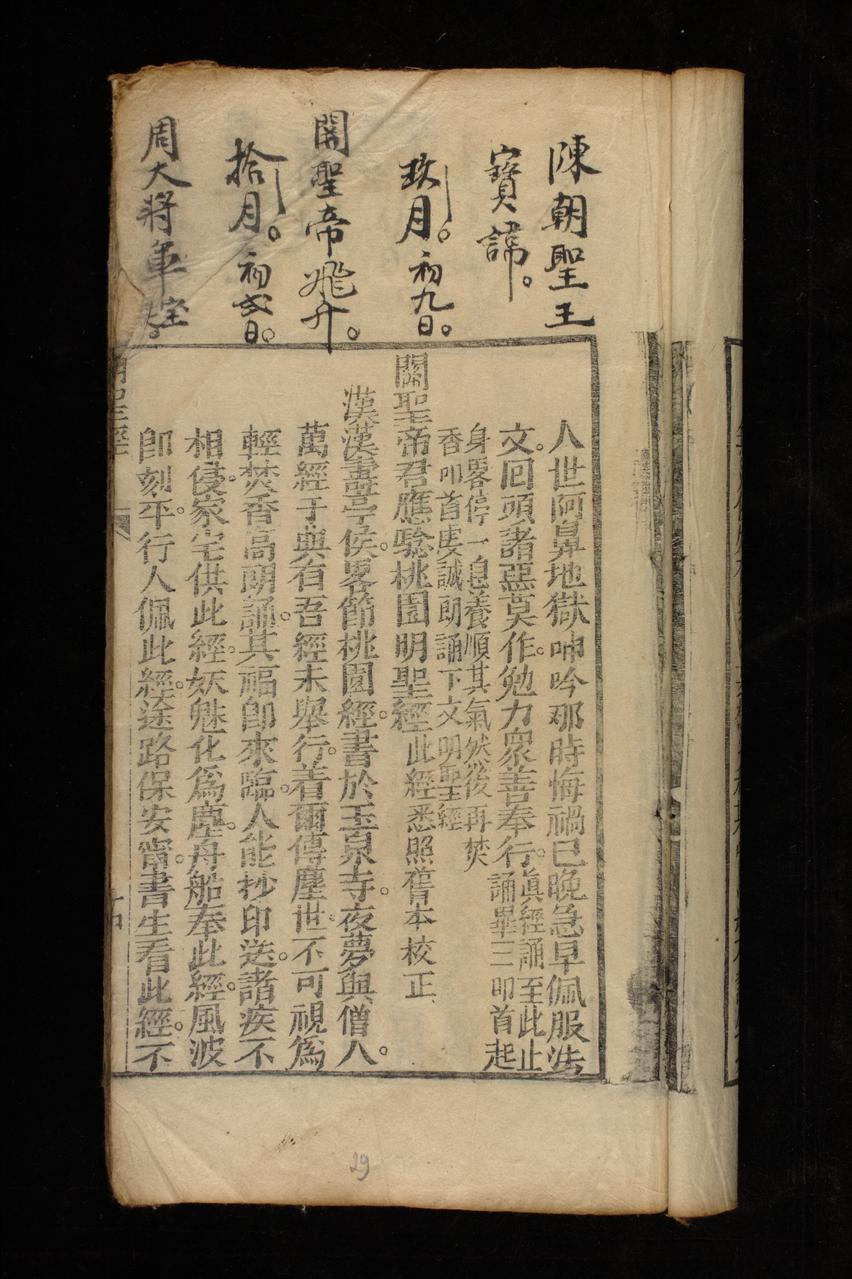 陳朝聖王
寳諱。
玖月。初九日。
関聖帝飛升。
拾月。初貳日。
周大將軍
人世阿鼻地獄呻吟那時悔禍已晚急早佩服法
文。回頭諸惡莫作。勉力衆善奉行。眞經誦至此止
誦畢三叩首起
身畧停一息養順其氣然後再焚
香叩首虔誠朗誦下文明聖經
關聖帝君應驗桃園明聖經此經悉照舊本校正
漢漢壽亭侯。畧節桃園經。書於玉泉寺。夜夢與僧人。
萬經于典有吾經未舉行。着爾傳塵世。不可視爲
輕焚香高朗誦。其福卽來臨。人能抄印送。諸疾不
相侵。家宅供此經。妖魅化爲塵。舟船奉此經。風波
卽刻平。行人佩此經。途路保安甯。書生看此經。不
明聖經